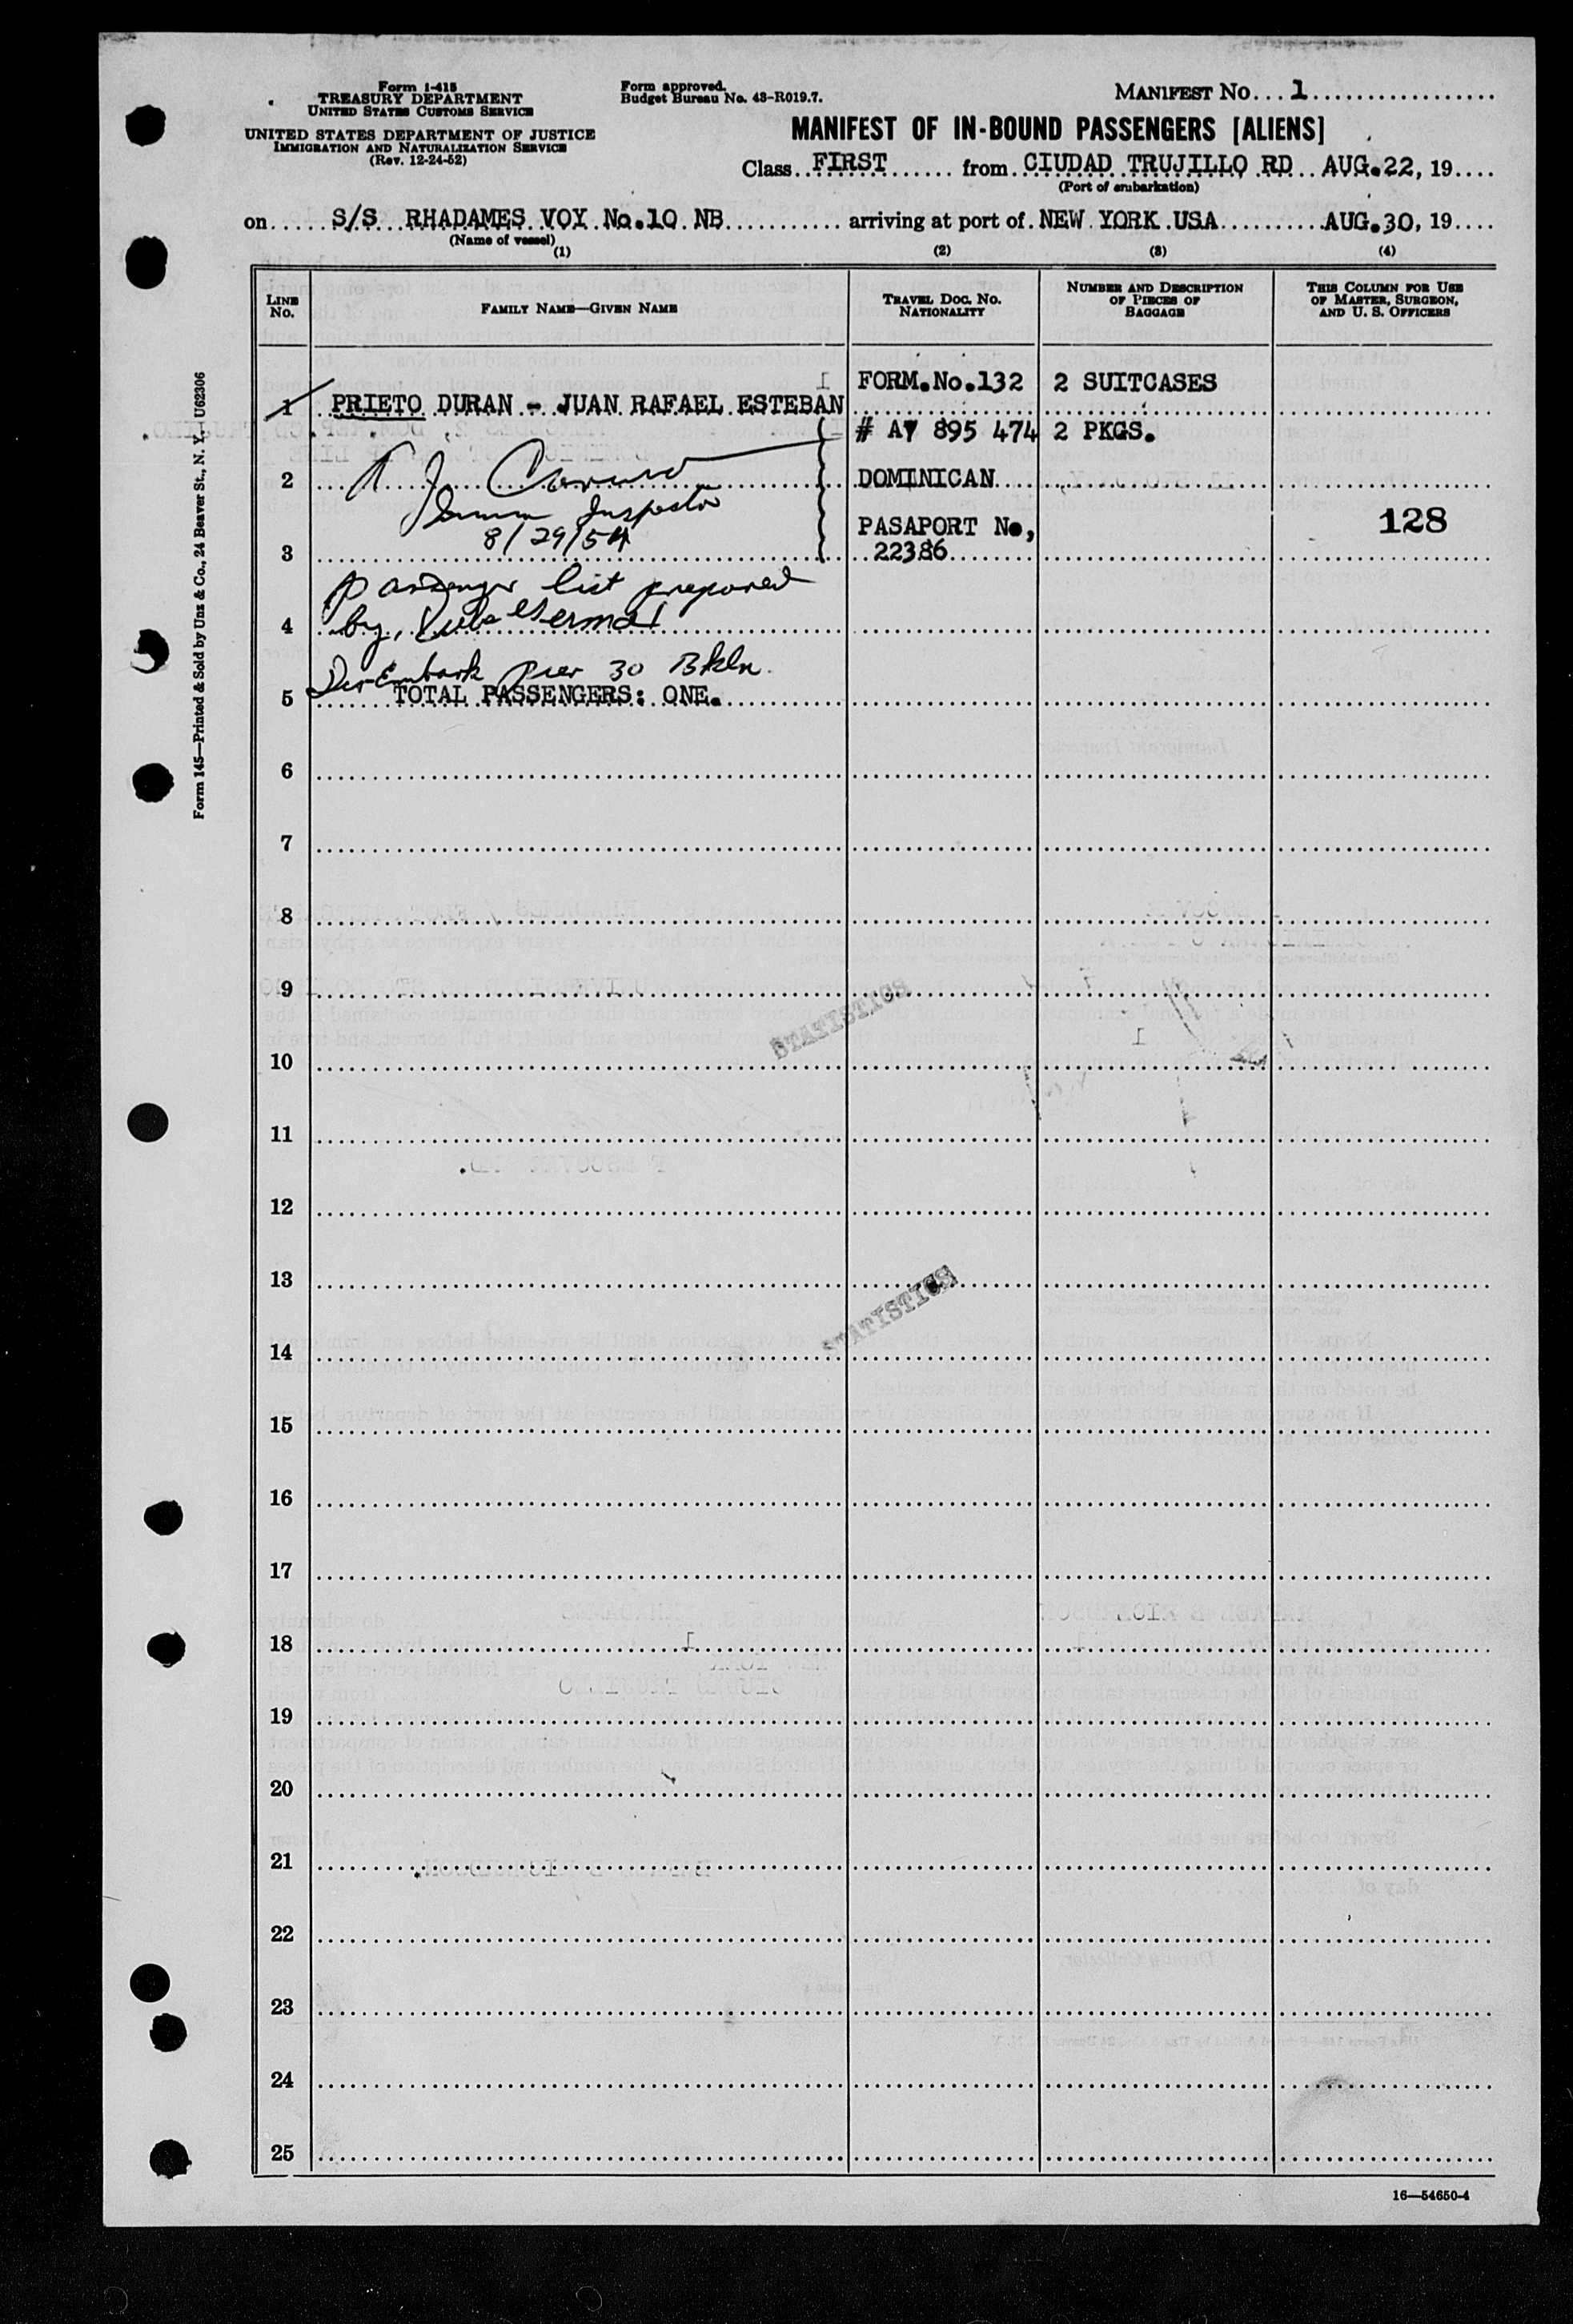 Form I-415
TREASURY DEPARTMENT
UNITED STATES CUSTOMS SERVICE
UNITED STATES DEPARTMENT OF JUSTICE
IMMIGRATION AND NATURALIZATION SERVICE
(Rev. 12-24-52)
Form approved.
Budget Bureau No. 43-R019.7.
MANIFEST NO. 1
MANIFEST OF IN-BOUND PASSENGERS [ALIENS]
Class FIRST from CIUDAD TRUJILLO RD AUG.22, 19
(Port of embarkation)
on S/S RHADAMES VOY No.10 NB arriving at port of NEW YORK USA AUG.30, 19
(Name of vessel)
(1) (2) (3) (4)
LINE NO. FAMILY NAME—GIVEN NAME TRAVEL DOC. NO. NATIONALITY NUMBER AND DESCRIPTION OF PIECES OF BAGGAGE THIS COLUMN FOR USE OF MASTER, SURGEON, AND U. S. OFFICERS
FORM.No.132 2 SUITCASES
1 PRIETO DURAN - JUAN RAFAEL ESTEBAN
# A7 895 474 2 PKGS.
2 DOMINICAN
Inspector
PASAPORT No, 128
8/29/54
3 22386
passenger list prepared
4 by,
DisEmbark pier 30 Bkln.
5 TOTAL PASSENGERS: ONE.
6
7
8
9
STATISTICS
10
11
12
13
STATISTICS
14
15
16
17
18
19
20
21
22
23
24
25
16—54650-4
Form 145—Printed & Sold by Unz & Co., 24 Beaver St., N. Y. U62306